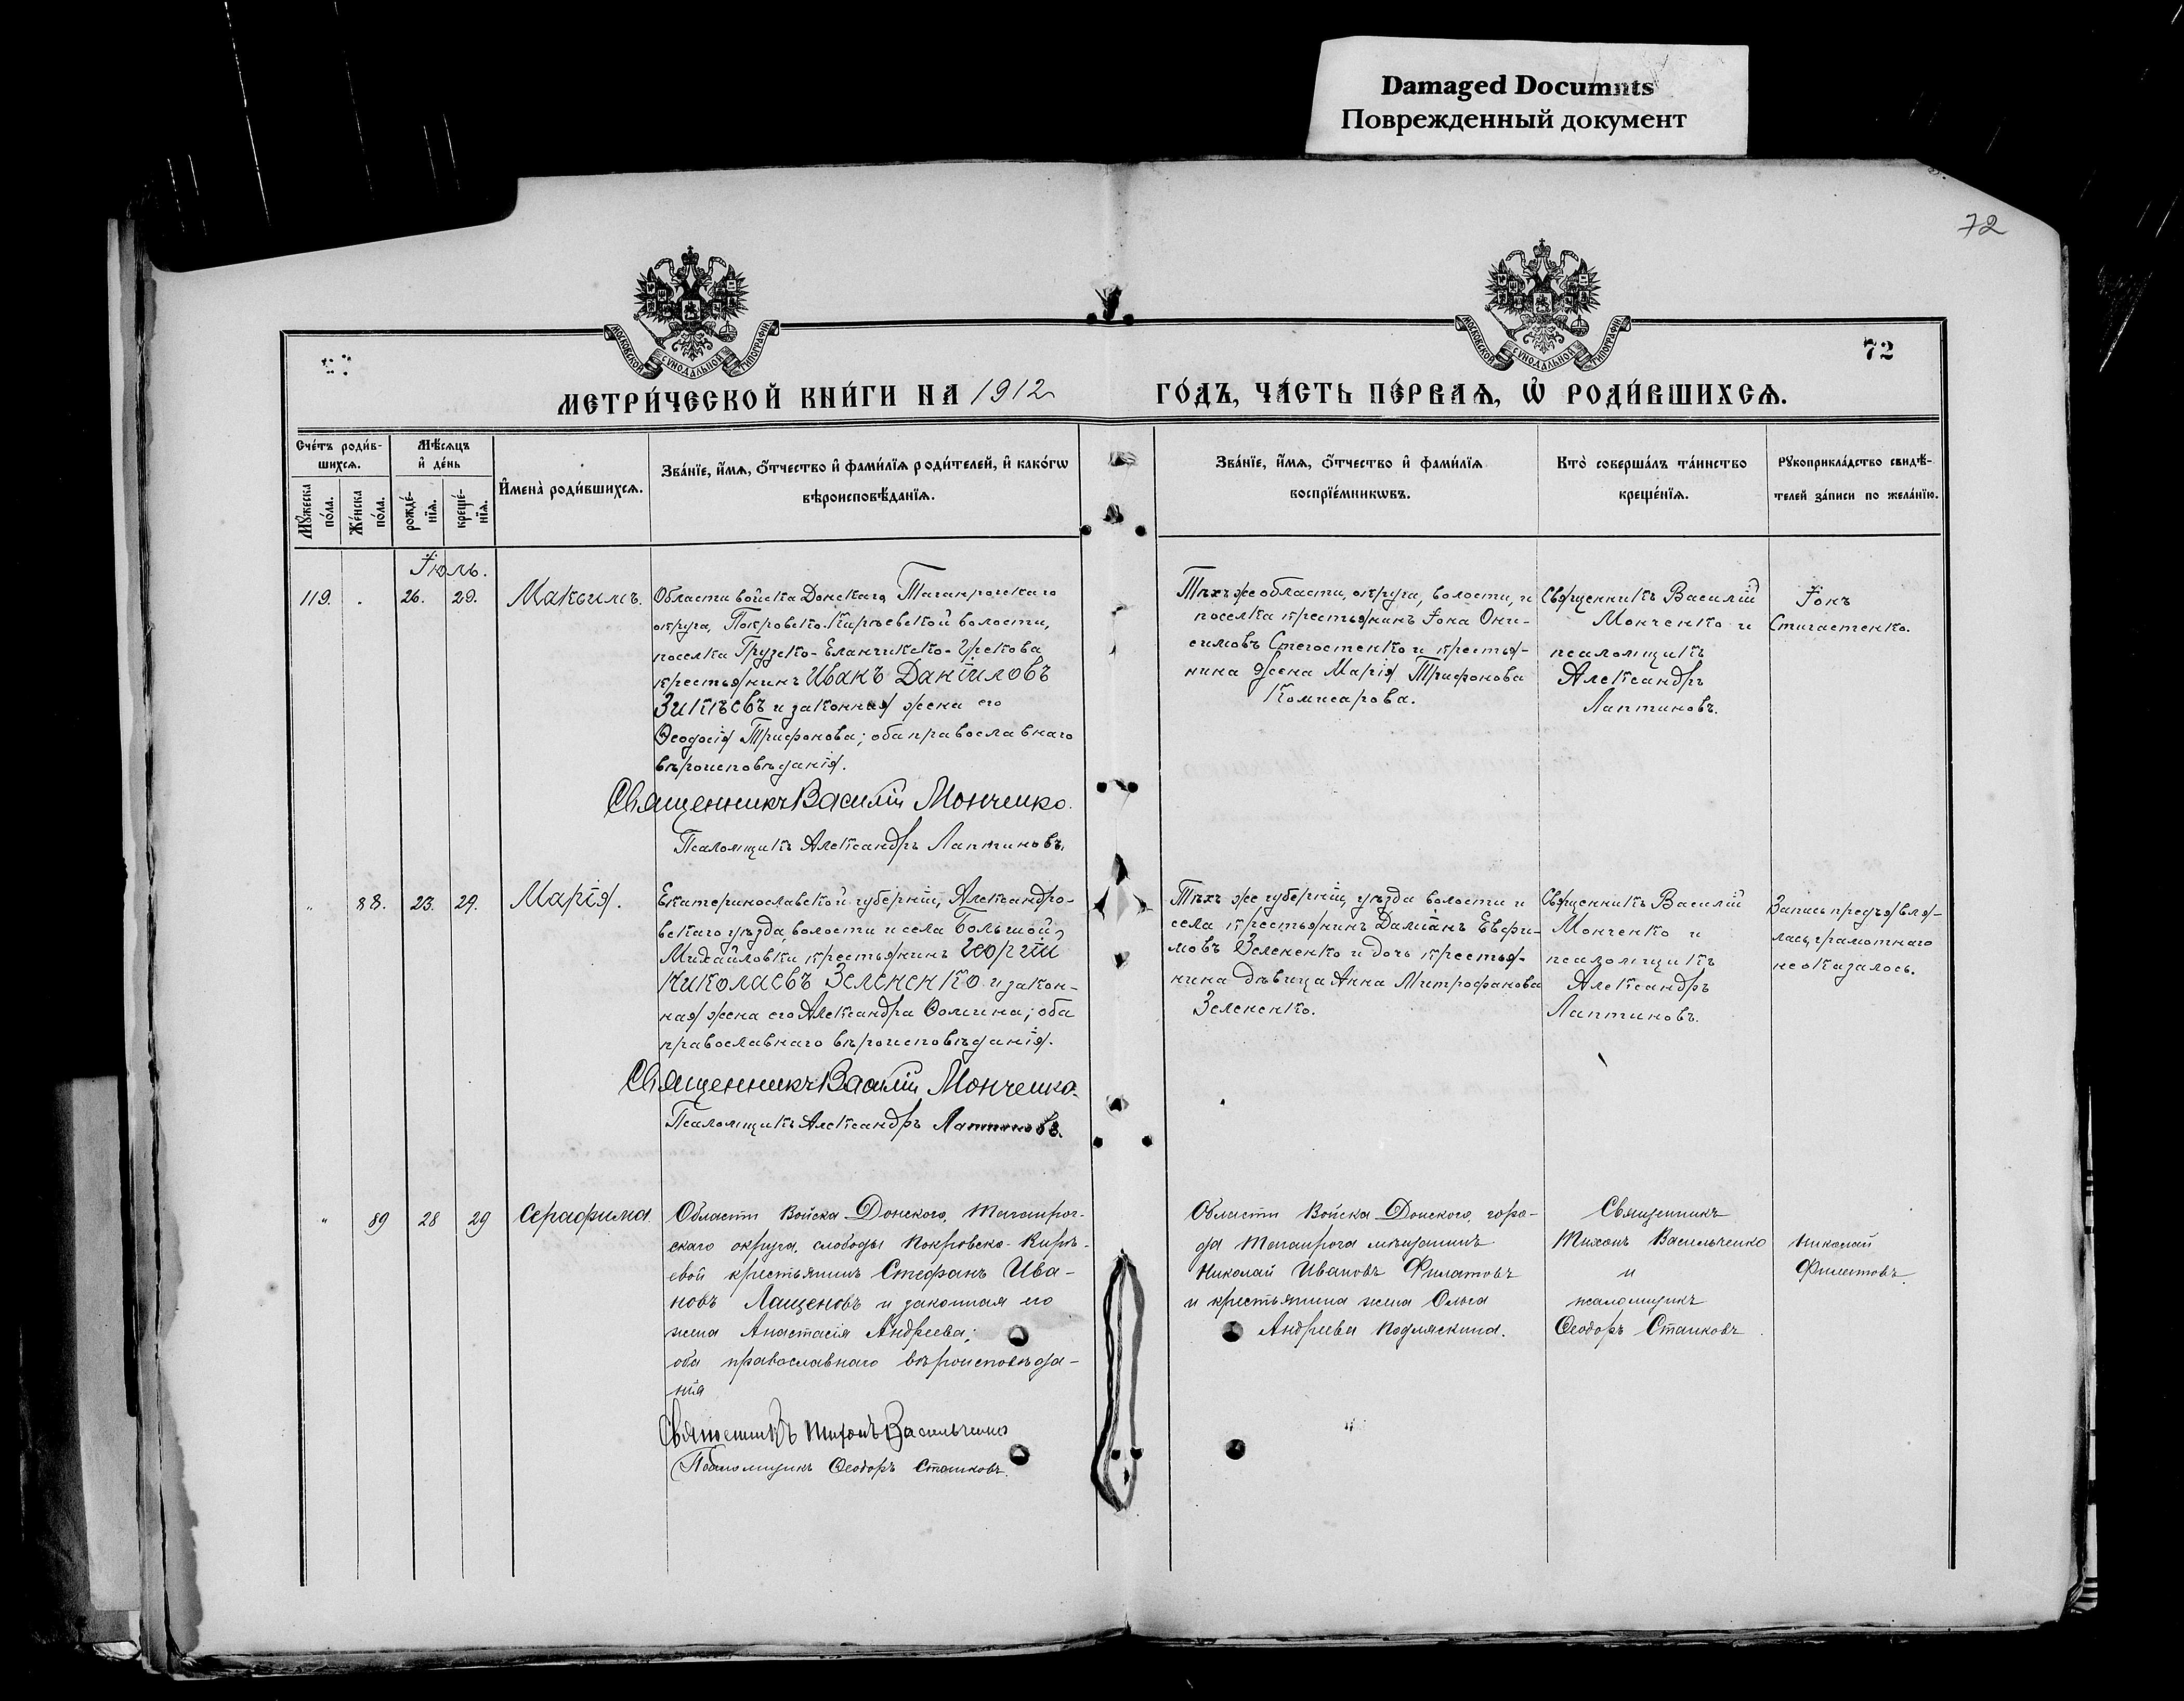 Damaged Documnts
Поврежденный документ
72
МОСКОВСКОЙ СУНОДАЛЬНОЙ ТИПОГРАФІИ
МОСКОВСКОЙ СУНОДАЛЬНОЙ ТИПОГРАФІИ
72
МЕТРИ́ЧЕСКОЙ КНИ́ГИ НА 1912
ГО́ДЪ, ЧА́СТЬ ПЕ́РВАѦ, Ѡ҆ РОДИ́ВШИХСѦ.
Сче́тъ роди́в-
шихсѧ.
Мѣ́сѧцъ
и҆ де́нь
Мꙋ́жеска
по́ла.
Же́нска
по́ла.
рожде́-
нїѧ.
креще́-
нїѧ.
И҆мена̀ роди́вшихсѧ.
Зва́нїе, и҆́мѧ, ѻ҆́тчество и҆ фами́лїѧ роди́телей, и҆ како́гѡ
вѣроисповѣ́данїѧ.
Зва́нїе, и҆́мѧ, ѻ҆́тчество и҆ фами́лїѧ
воспрїе́мникѡвъ.
Кто̀ соверша́лъ та́инство
креще́нїѧ.
Рꙋкоприкла́дство свидѣ́-
телей за́писи по жела́нїю.
Іюль.
119. . 26. 29. Максимъ.
Области войска Донскаго, Таганрогскаго
округа, Покровско-Кирѣевской волости,
поселка Грузско-Еланчикско-Грекова
крестьянинъ Иванъ Даніиловъ
Зинѣевъ и законная жена его
Ѳеодосія Трифонова; оба православнаго
вѣроисповѣданія.
Священникъ Василій Монченко.
Псаломщикъ Александръ Лаптиновъ.
Тѣхъ же области, округа, волости, и
поселка крестьянинъ Іона Они-
симовъ Стогостенко и крестья-
нина жена Марія Трифонова
Комисарова.
Священникъ Василій
Монченко и
псаломщикъ
Александръ
Лаптиновъ.
Іонъ
Стигастенко.
" 88. 23. 29. Марія.
Екатеринославской губерніи, Александро-
вскаго уѣзда, волости и села Большой
Михайловки крестьянинъ Георгій
Николаевъ Зелененко и закон-
ная жена его Александра Ѳомина; оба
православнаго вѣроисповѣданія.
Священникъ Василій Монченко.
Псаломщикъ Александръ Лаптиновъ.
Тѣхъ же губерніи, уѣзда волости и
села крестьянинъ Даміанъ Евфи-
мовъ Зелененко и дочь крестья-
нина дѣвица Анна Митрофанова
Зелененко.
Священникъ Василій
Монченко и
псаломщикъ
Александръ
Лаптиновъ.
Запись предъявля-
лась, грамотнаго
не оказалось.
" 89 28 29 Серафима.
Области Войска Донского, Таганрог-
скаго округа, слободы Покровско-Кирѣ-
евой крестьянинъ Стефанъ Ива-
новъ Лащеновъ и законная его
жена Анастасія Андреева;
оба православнаго вѣроисповѣда-
нія
Священникъ Тихонъ Васильченко
Псаломщикъ Ѳеодоръ Станковъ.
Области Войска Донского, горо-
да Таганрога мѣщанинъ
Николай Ивановъ Филатовъ
и крестьянина жена Ольга
Андреева Подляскина.
Священникъ
Тихонъ Васильченко
и
псаломщикъ
Ѳеодоръ Станковъ
Николай
Филатовъ.